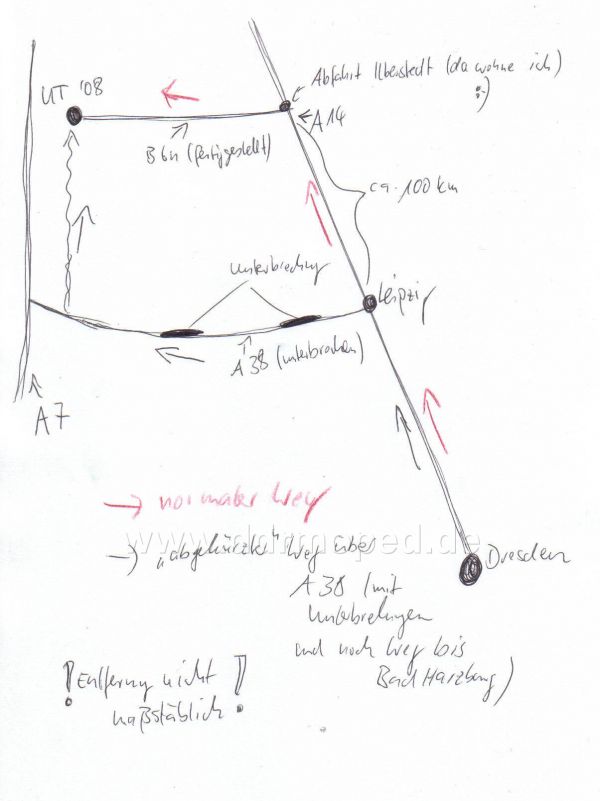 UT '08
Abfahrt Ilberstedt (da wohne ich)
:)
A14
B6n (fertiggestellt)
ca. 100 km
Unterbrechung
Leipzig
A38 (unterbrochen)
A7
→ normaler Weg
www.oldmoped.de
→ „abgekürzter" Weg über
A38 (mit
Unterbrechungen
und noch Weg bis
Bad Harzburg)
Dresden
! Entfernung nicht !
maßstäblich